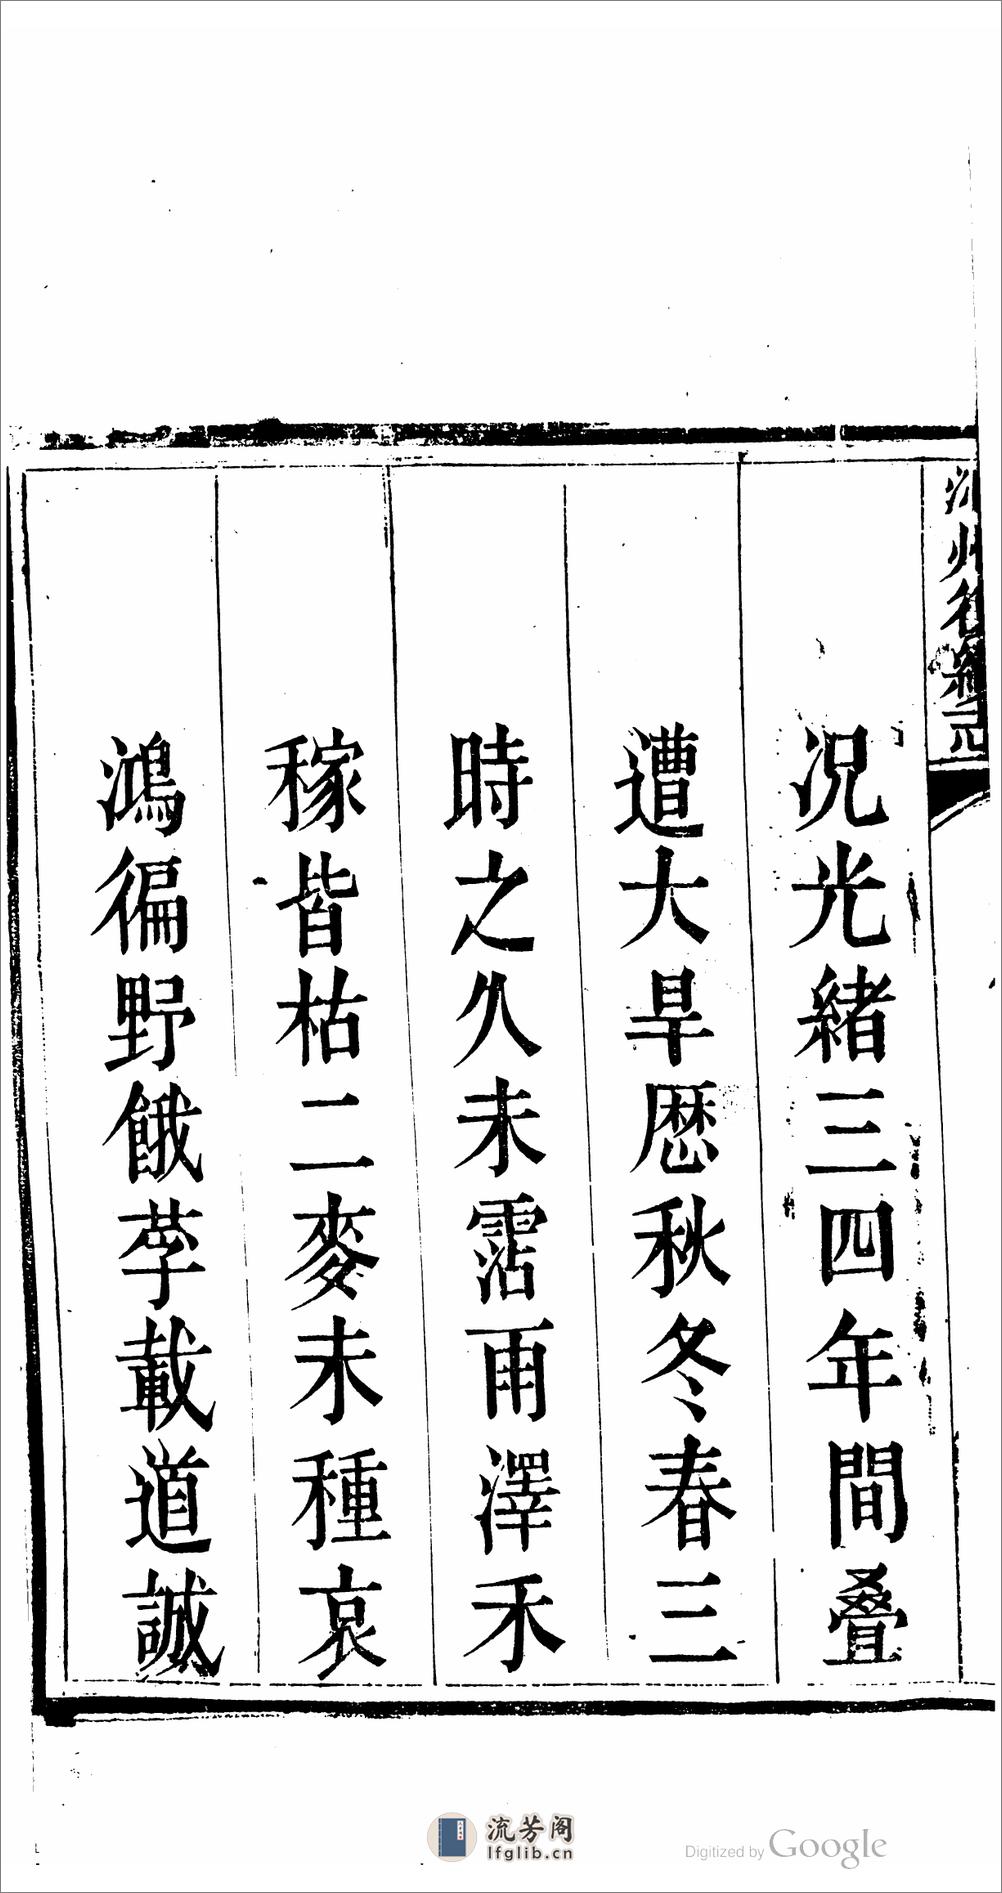 州後
四
況光緒三四年間疊
遭大旱歴秋冬春三
時之久未霑雨澤禾
稼皆枯二麥未種哀
鴻徧野餓莩載道誠
流芳阁
lfglib.cn
Digitized by Google